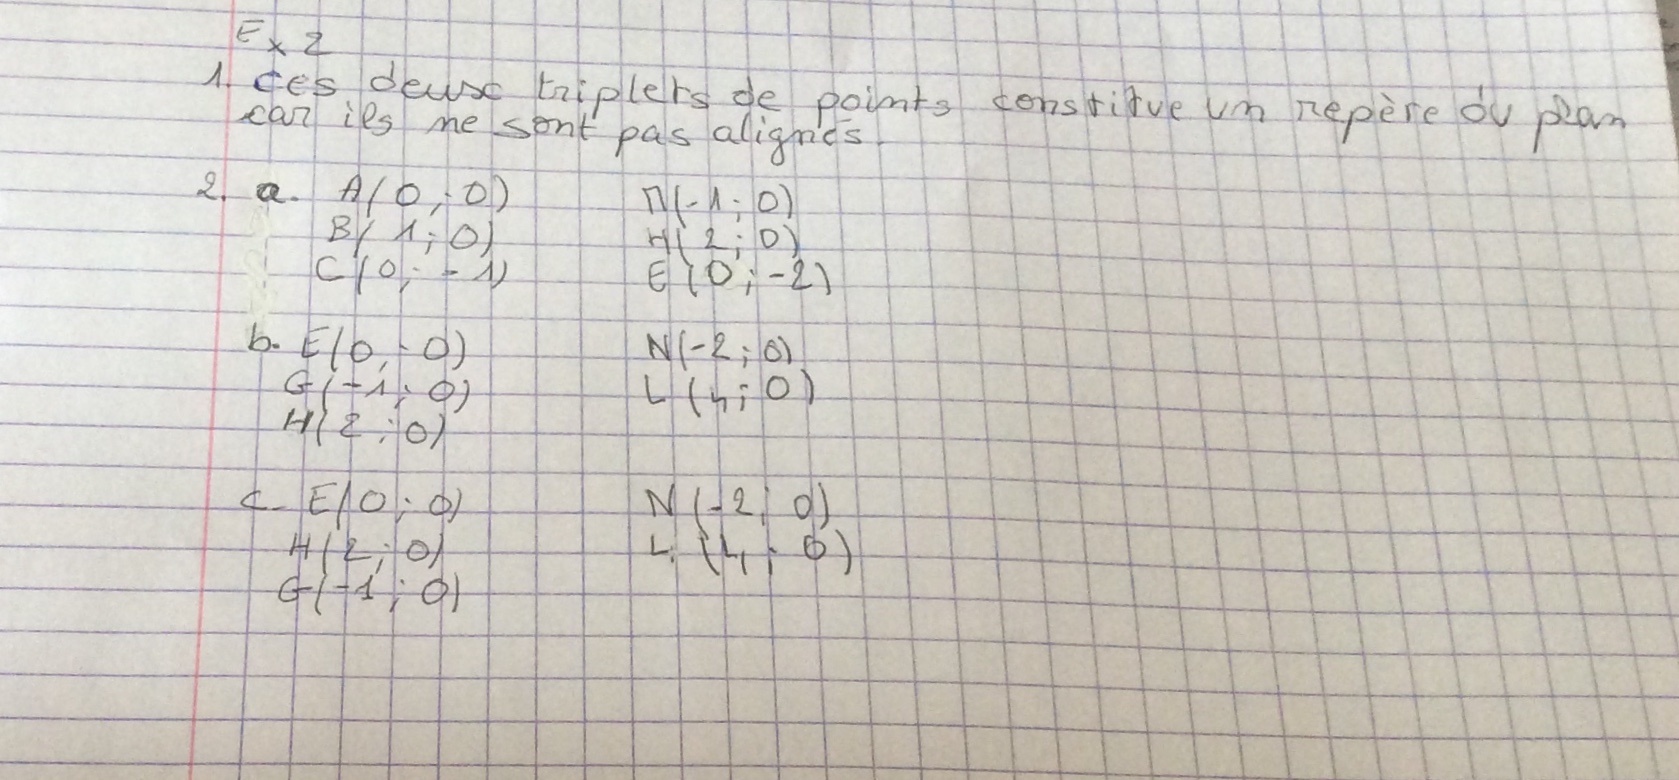 Ex 2
1. Ces deux triplets de points constitue un repère du plan
car ils ne sont pas alignés.
2. a. A(0;0) M(-1;0)
B(1;0) H(2;0)
C(0;-1) E(0;-2)
b. E(0;0) N(-2;0)
G(-1;0) L(4;0)
H(2;0)
c. E(0;0) N(-2;0)
H(2;0) L(4;0)
G(-1;0)